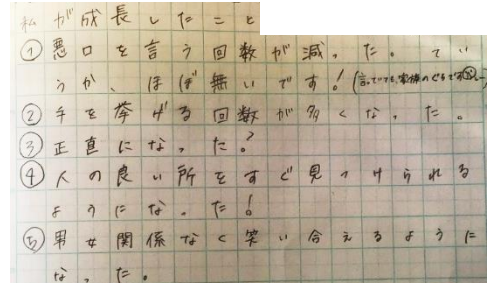 私が成長したこと
①悪口を言う回数が減った。てい
うか、ほぼ無いです!(言っていても、家族のぐちです
②手を挙げる回数が多くなった。
③正直になった?
④人の良い所をすぐ見つけられる
ようになった!
⑤男女関係なく笑い合えるように
なった。